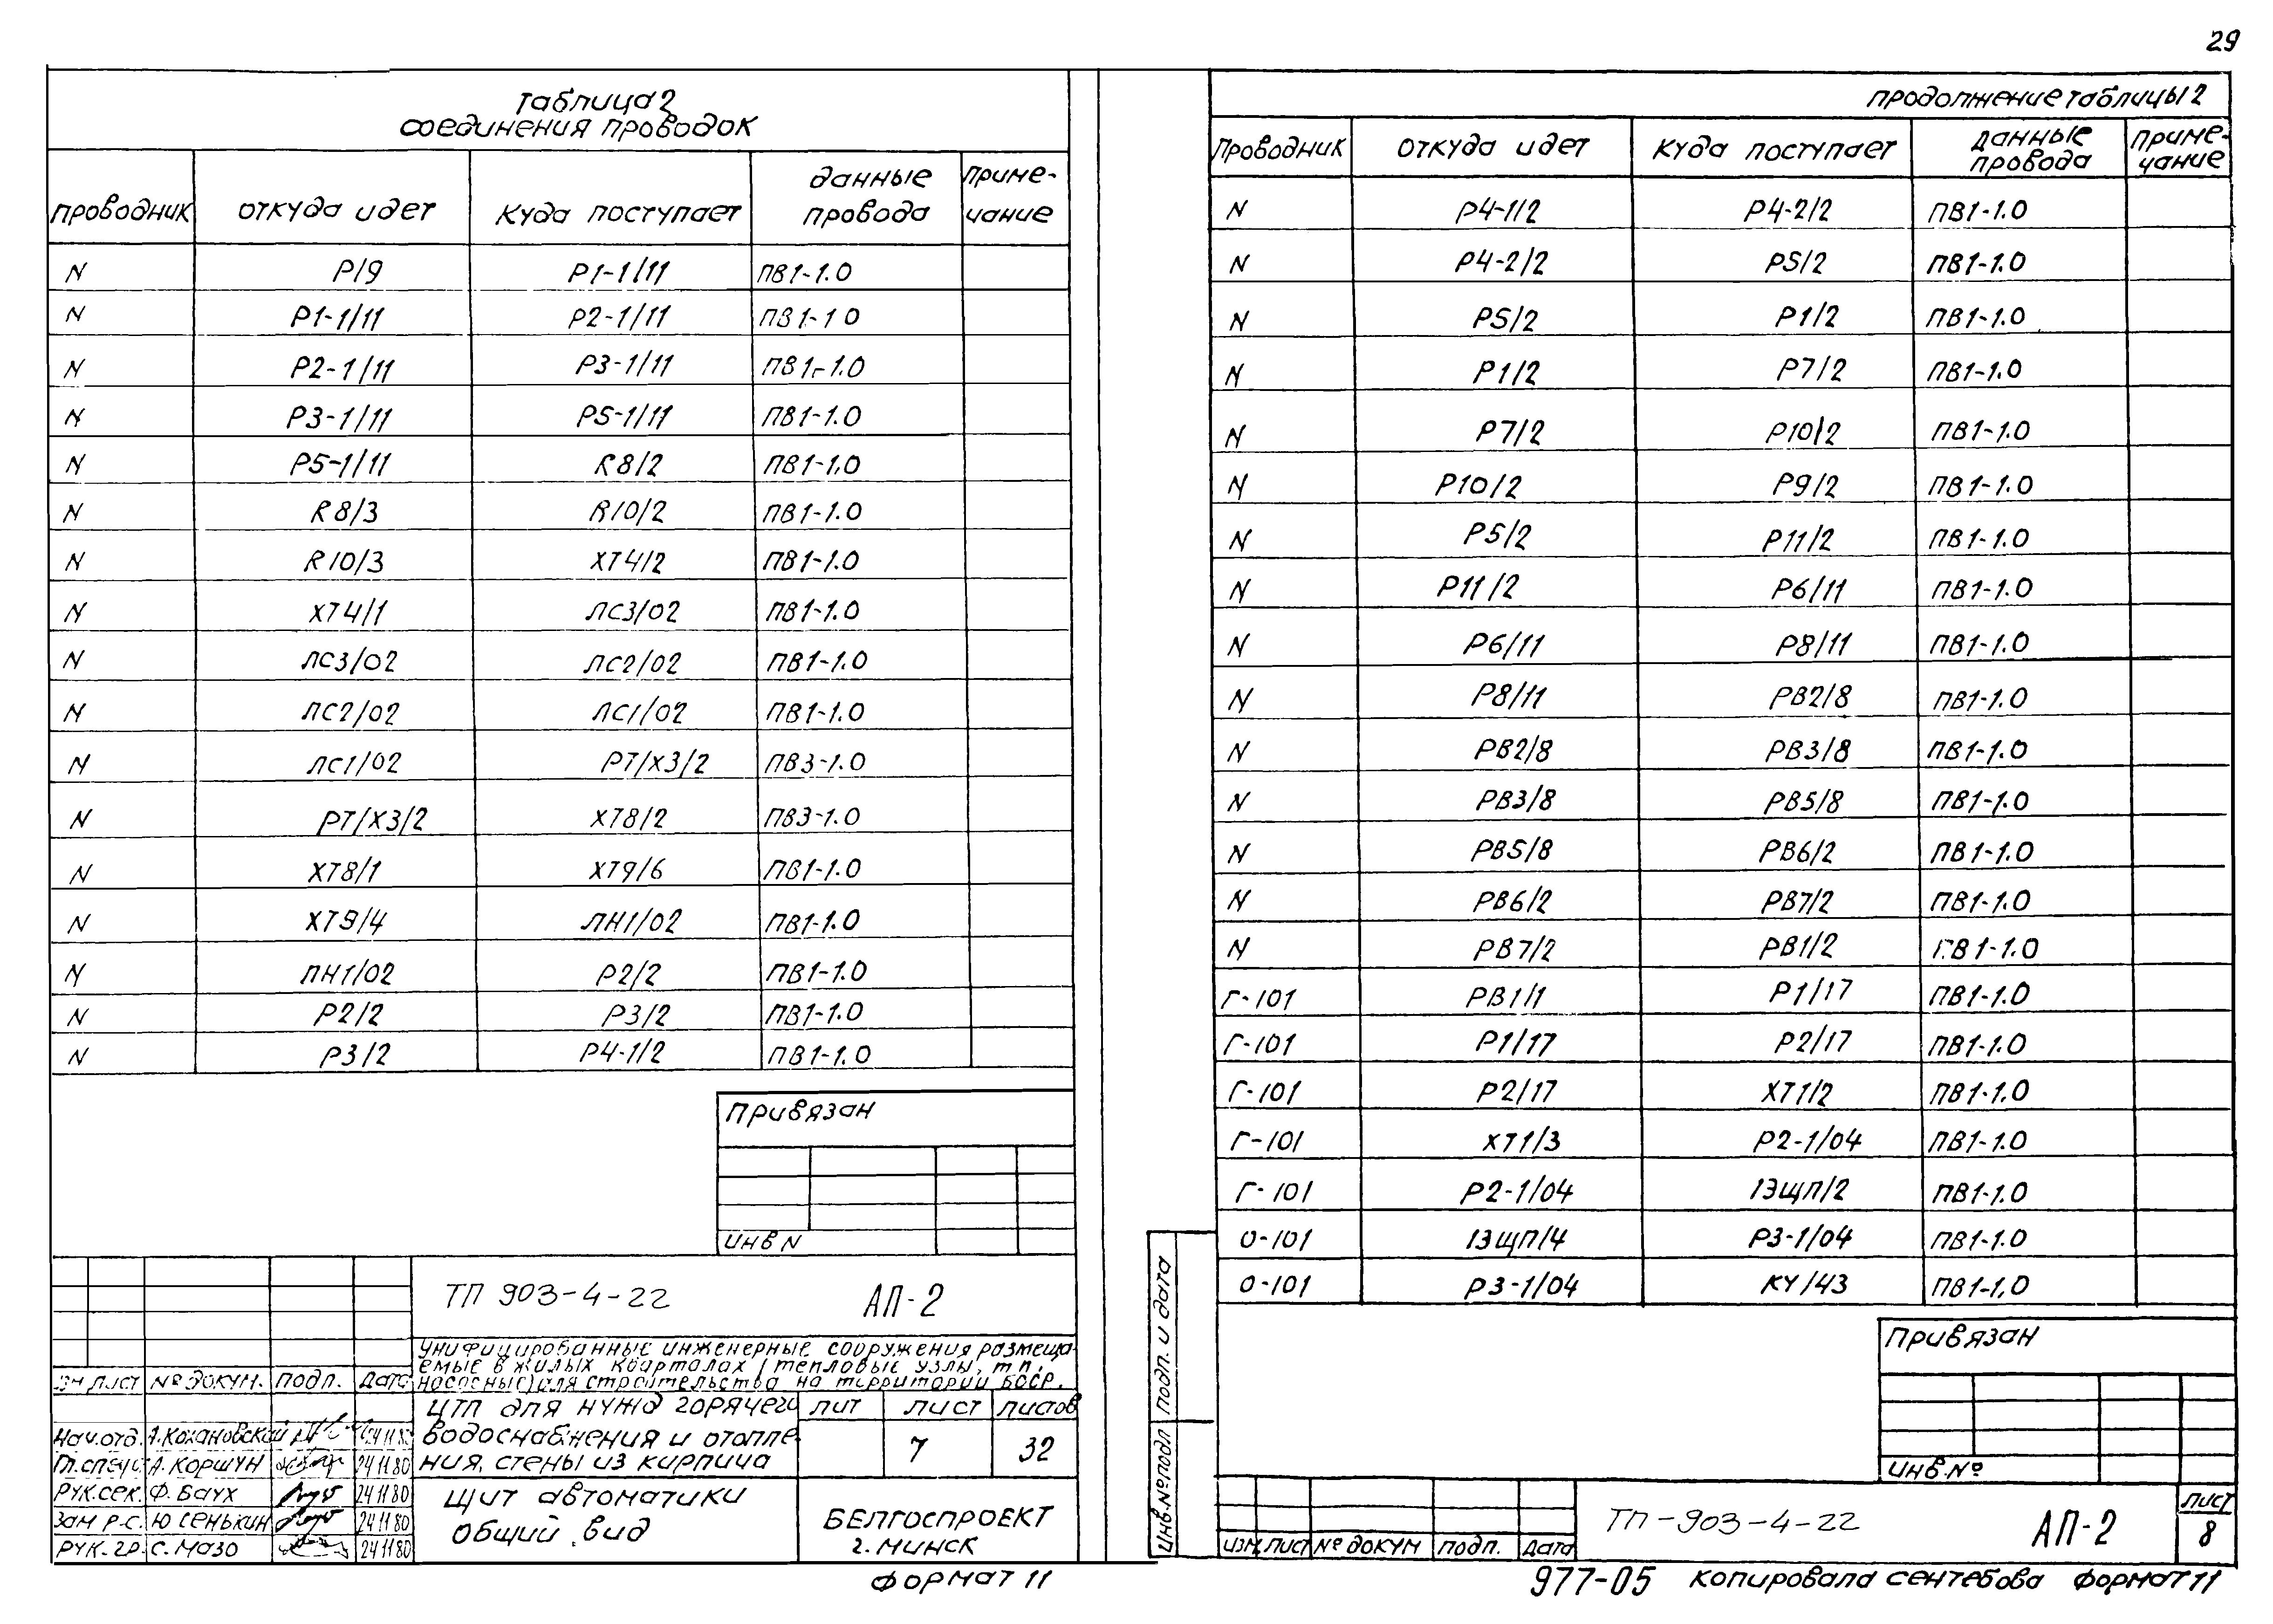 29
Таблица 2
соединения проводок
Проводник откуда идет Куда поступает данные провода Примечание
N Р/9 Р1-1/11 ПВ1-1.0
N Р1-1/11 Р2-1/11 ПВ1-1 0
N Р2-1/11 Р3-1/11 ПВ1-1.0
N Р3-1/11 Р5-1/11 ПВ1-1.0
N Р5-1/11 R8/2 ПВ1-1.0
N R8/3 R10/2 ПВ1-1.0
N R10/3 ХТ4/2 ПВ1-1.0
N ХТ4/1 ЛС3/02 ПВ1-1.0
N ЛС3/02 ЛС2/02 ПВ1-1.0
N ЛС2/02 ЛС1/02 ПВ1-1.0
N ЛС1/02 РТ/Х3/2 ПВ3-1.0
N РТ/Х3/2 ХТ8/2 ПВ3-1.0
N ХТ8/1 ХТ9/6 ПВ1-1.0
N ХТ9/4 ЛН1/02 ПВ1-1.0
N ЛН1/02 Р2/2 ПВ1-1.0
N Р2/2 Р3/2 ПВ1-1.0
N Р3/2 Р4-1/2 ПВ1-1.0
Привязан
Инв N
ТП 903-4-22 АП-2
Унифицированные инженерные сооружения размеща-
емые в жилых кварталах (тепловые узлы, тп,
насосные) для строительства на территории БССР.
Изм Лист №докум. Подп. Дата
ЦТП для нужд горячего
водоснабжения и отопле-
ния, стены из кирпича
Лит Лист Листов
7 32
Нач.отд. А.Кохановский
Гл.спец. А.Коршун 24 11 80
Рук.сек. Ф.Баух 24 11 80
Зам р.с. Ю Сенькин 24 11 80
Рук.гр. С.Мазо 24 11 80
Щит автоматики
Общий вид
БЕЛГОСПРОЕКТ
г.Минск
Формат 11
Продолжение таблицы 2
Проводник откуда идет Куда поступает Данные провода Примечание
N Р4-1/2 Р4-2/2 ПВ1-1.0
N Р4-2/2 Р5/2 ПВ1-1.0
N Р5/2 Р1/2 ПВ1-1.0
N Р1/2 Р7/2 ПВ1-1.0
N Р7/2 Р10/2 ПВ1-1.0
N Р10/2 Р9/2 ПВ1-1.0
N Р5/2 Р11/2 ПВ1-1.0
N Р11/2 Р6/11 ПВ1-1.0
N Р6/11 Р8/11 ПВ1-1.0
N Р8/11 РВ2/8 ПВ1-1.0
N РВ2/8 РВ3/8 ПВ1-1.0
N РВ3/8 РВ5/8 ПВ1-1.0
N РВ5/8 РВ6/2 ПВ1-1.0
N РВ6/2 РВ7/2 ПВ1-1.0
N РВ7/2 РВ1/2 ПВ1-1.0
Г-101 РВ1/1 Р1/17 ПВ1-1.0
Г-101 Р1/17 Р2/17 ПВ1-1.0
Г-101 Р2/17 ХТ1/2 ПВ1-1.0
Г-101 ХТ1/3 Р2-1/04 ПВ1-1.0
Г-101 Р2-1/04 1ЭЩП/2 ПВ1-1.0
0-101 1ЭЩП/4 Р3-1/04 ПВ1-1.0
0-101 Р3-1/04 КУ/43 ПВ1-1.0
Привязан
Инв.№
Подп. и дата
Инв.№подл
Изм Лист № докум Подп. Дата
ТП-903-4-22 АП-2
Лист
8
977-05 Копировала Сентебова Формат 11